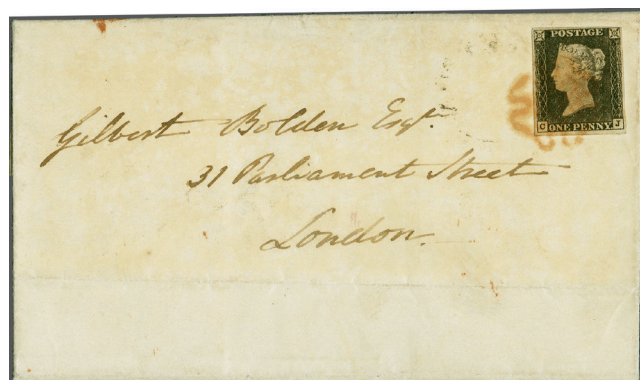 POSTAGE
C ONE PENNY J
Gilbert Bolden Esqr.
31 Parliament Street
London.